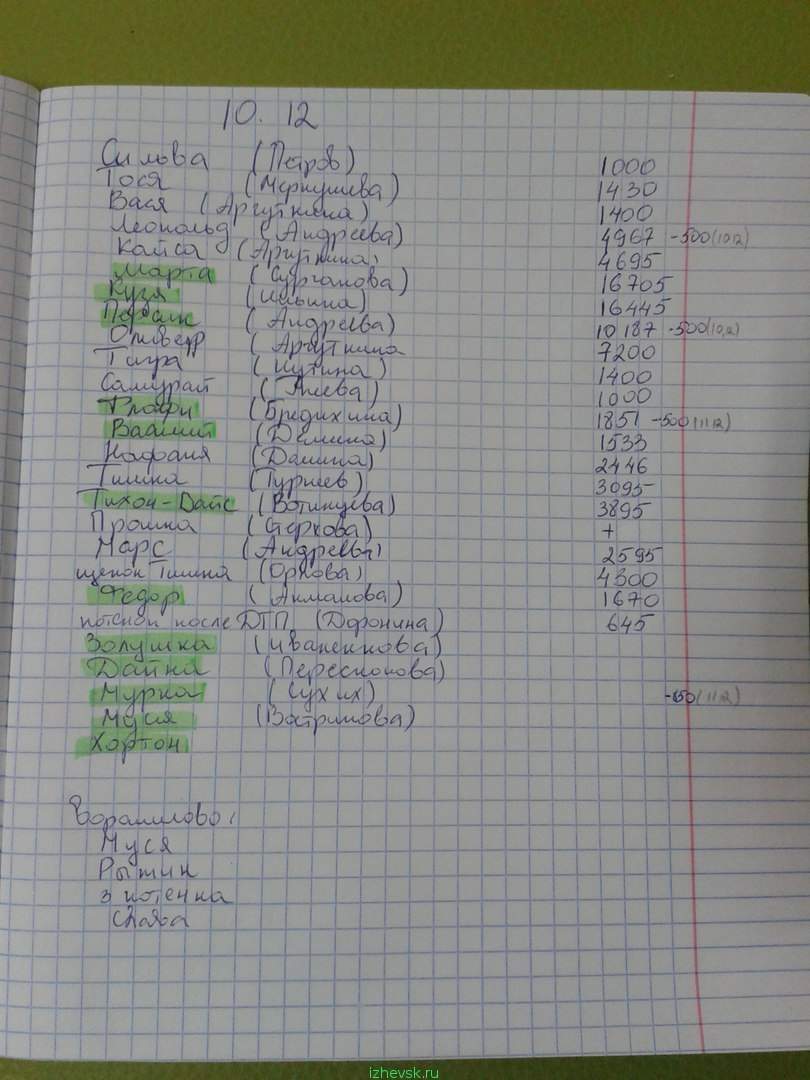 10. 12
Сильва (Петров) 1000
Тося (Меркушева) 1430
Вася (Аргуткина) 1400
Леопольд (Андреева) 4967 -500(10,12)
Кайса (Аргуткина) 4695
Марта (Сурганова) 16705
Кузя (Ильина) 16445
(Андреева) 10187 -500(10,12)
Оливер (Аргуткина 7200
Тигра (Кутина) 1400
Самурай 1000
Флафи (Бредихина) 1851 -500(11,12)
Василий (Демина) 1533
Нафаня (Данина) 2446
Тишка (Гуриев) 3095
Тихон-Дайс (Вотинцева) 3895
Прошка (Стеркова) +
Марс (Андреева) 2595
щенок Тишка (Орлова) 4300
Федор (Акмалова) 1670
котенок после ДТП (Доронина) 645
Золушка (Иваненкова)
Дайна (Перескокова)
Мурка (Сухих) (11,12)
Муся (Вострикова)
Хортон
Муся
Рыжик
3 котенка